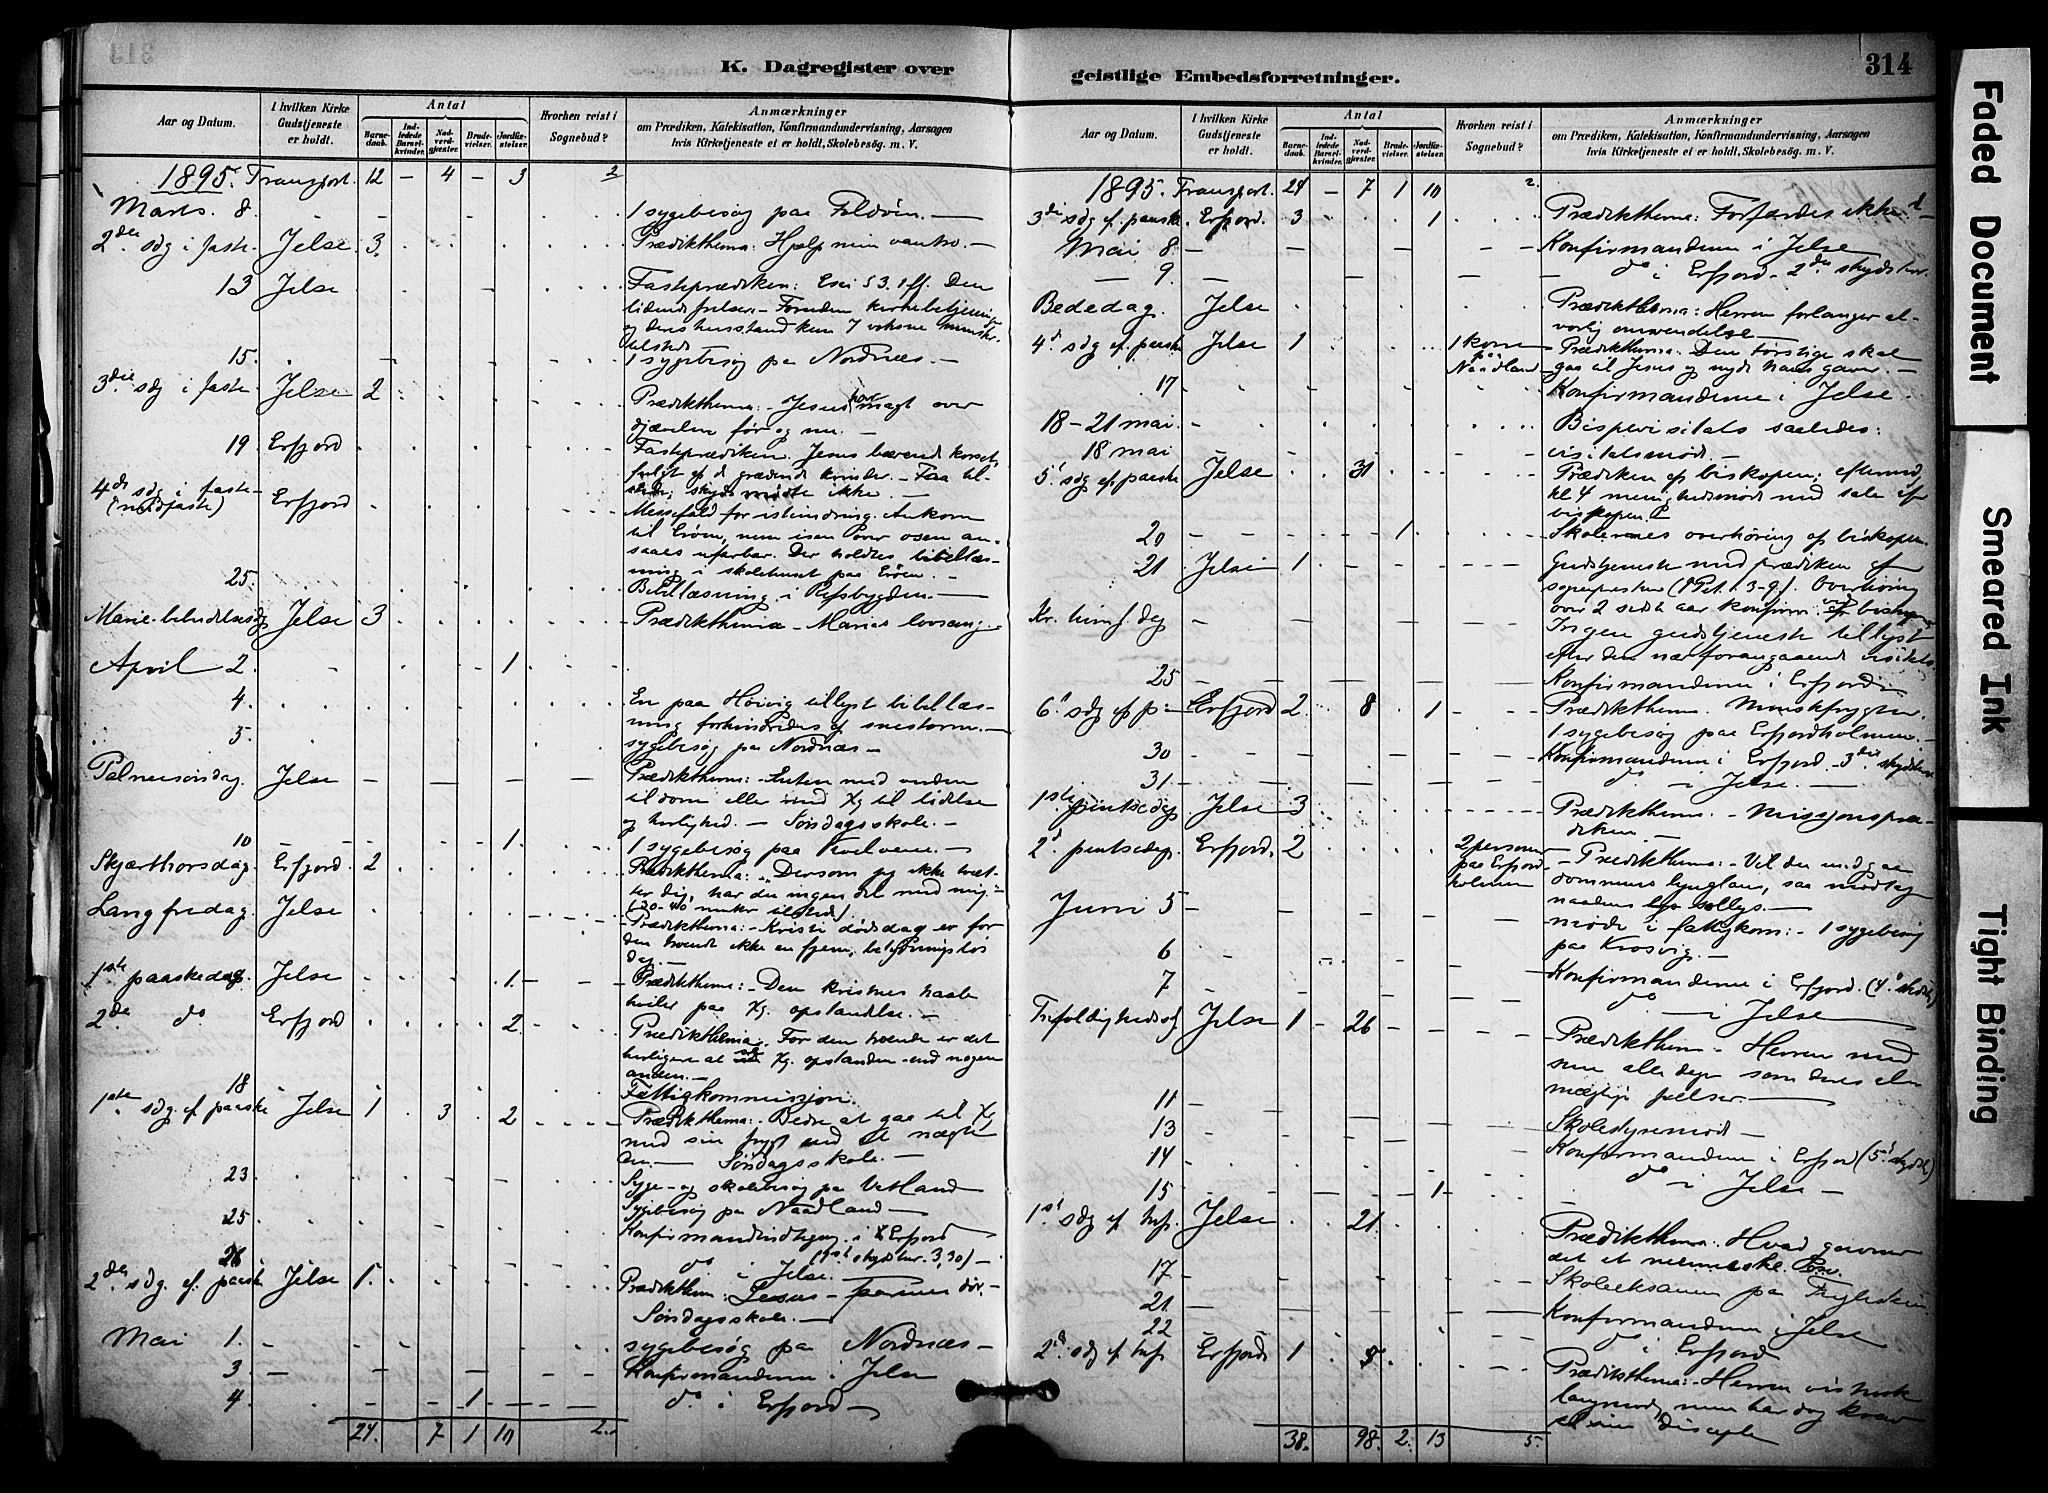 K. Dagregister over
Aar og Datum.
I hvilken Kirke Gudstjeneste er holdt.
Antal
Barnedaab.
Indledede Barselkvinder.
Nadverdgjæster.
Brudevielser.
Jordfæstelser.
Hvorhen reist i Sognebud?
Anmærkninger
om Prædiken, Katekisation, Konfirmandundervisning, Aarsagen
hvis Kirketjeneste ei er holdt, Skolebesög. m. V.
1895. Transport. 12 – 4 – 3 2
Marts. 8. 1 sygebesøg paa Foldøen. —
2den sdg i faste Jelse 3. Prædikthema: Hjælp min vantro. —
13 Jelse Fasteprædiken: Esai 53. 1 ff. Den
lidende frelser. – Foruden kirkebetjening
og deres husstand kun 7 voksne mensker
tilstede
15. 1 sygebesøg paa Nordnæs. —
3die sdg i faste Jelse 2 Prædikthema: – Jesus har magt over
djævelen før og nu. —
19 Erfjord Fasteprædiken. Jesus bærende korset
fulgt af d. grædende kvinder. – Faa til-
stede; skyds mødte ikke. —
4de sdg. i faste Erfjord Messefald for isthindring. Ankom
(midfaste) til Erøen, men isen over osen an-
saaes ufarbar. Der holdtes bibellæs-
ning i skolehuset paa Erøen. —
25. Bibellæsning i Refsbygden. —
Marie bebudelsesdg Jelse 3 Prædikthema – Marias lovsang —
April 2. 1.
4. En paa Høivig tillyst bibellæs-
ning forhindredes af snestorm. —
5. sygebesøg paa Nordnæs –
Palmesøndag. Jelse Prædikthema: – Enten med verden
til dom eller med Xs til lidelse
og herlighed. – Søndagsskole. –
10 1. 1 sygebesøg paa
Skjærthorsdag. Erfjord. 2 Prædikthema: „Dersom jeg ikke tvæt-
ter dig, har du ingen del med mig."
(30-40 mskr tilstede)
Langfredag. Jelse Prædikthema: – Kristi dødsdag er for
den troende ikke en fjern, betydningsløs
dag. —
1ste paaskedag. Jelse 1. Prædikthema: – Den kristnes haab
hviler paa Xs. opstandelse. —
2den do Erfjord 2. Prædikthema. For den troende er det
herligere at Xs. opstanden end nogen
anden. —
18 Fattigkommissjon.
1ste sdg. ef. paaske Jelse 1 3 2 Prædikthema: – Bedre at gaa til Xs
med sin frygt end at nægte
den. — Søndagsskole. –
23 Syge- og skolebesøg paa Vetland
25 Sygebesøg paa Naadland —
Konfirmandindtegning i Erfjord
26 do i Jelse. (1ste skydstur. 3,30) —
2den sdg. ef. paaske Jelse 1. Prædikthem: Jesus – faarenes dør. –
Søndagsskole. —
Mai 1. sygebesøg paa Nordnæs –
3 Konfirmanderne i Jelse
4 1 do. i Erfjord —
24. 7 1 10 2.
geistlige Embedsforretninger.
314
Aar og Datum.
I hvilken Kirke Gudstjeneste er holdt.
Antal
Barnedaab.
Indledede Barselkvinder.
Nadverdgjæster.
Brudevielser.
Jordfæstelser.
Hvorhen reist i Sognebud?
Anmærkninger
om Prædiken, Katekisation, Konfirmandundervisning, Aarsagen
hvis Kirketjeneste ei er holdt, Skolebesög. m. V.
1895. Transport. 24 – 7 1 10 2.
3die sdg ef. paaske. Erfjord. 3 1 Prædikthema: Forfærdes ikke!
Mai 8. Konfirmanderne i Jelse
— 9. do i Erfjord – 2den skydstur.
Bededag. Jelse Prædikthema: Herren forlanger al-
vorlig omvendelse —
4d sdg ef. paaske Jelse 1 1 kone paa Naadland Prædikthema. Den tørstige skal
gaa til Jesus og nyde hans gaver. —
17 Konfirmanderne i Jelse.
18–21 mai. Bispevisitats saaledes:
18 mai visitatsmøde. —
5t sdg ef. paaske Jelse 31 Prædiken af biskopen; eftermid.
kl 4 menighedsmøde med tale af
biskopen.
20 1 Skolernes overhøring af biskopen.
21 Jelse 1 Gudstjeneste med prædiken af
sogneprester (1 Pet. 1. 3-9). Overhøring
over 2 sidste aar konfirm. ved biskopen
Kr. himf. dag Ingen gudstjeneste tillyst
efter den nærforangaaende visitats.
25 Konfirmanderne i Erfjord
6t sdg ef p. Erfjord 2. 8 1 Prædikthema. Menskefrygten.
1 sygebesøg paa Erfjordholmen. —
30 Konfirmanderne i Erfjord – 3die skydstur
31 do – i Jelse. —
1ste pintsedag Jelse 3 Prædikthema. – Missjonspræ-
diken —
2d. pintsedag. Erfjord. 2 2 personer paa Erfjordholmen – Prædikthema: – Vil du undgaa
dommens lynglans, saa modtag
naadens sollys. —
Juni 5 møde i fattigkom: – 1 sygebesøg
paa Krosvig. —
6 Konfirmanderne i Erfjord. (4d skydst)
7 do – i Jelse —
Trefoldighedsdg Jelse 1 26 Prædikthem – Herren med
sine alle dage som deres al-
mægtige frelser. —
11 Skolestyremøde —
13 Konfirmanderne i Erfjord (5t skydst)
14 do i Jelse —
15 1
1st. sdg ef. tref. Jelse 21. Prædikthema. Hvad gavner
det et menneske &c.
17 Skoleeksamen paa
21. Konfirmanderne i Jelse
22 do i Erfjord
2d sdg ef. tref. Erfjord 1 5 Prædikthema: – Herren vis nok
langmod, men har dog krav
til sine disciple
38. 98. 2. 13 5.
Faded Document
Smeared Ink
Tight Binding